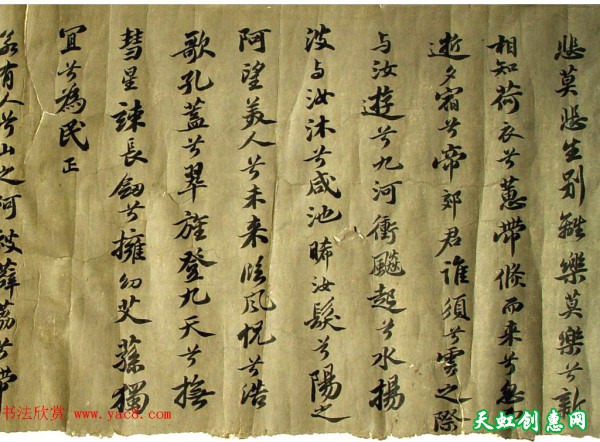 悲莫悲生別離樂莫樂兮新
相知荷衣兮蕙帶倏而来兮忽
逝夕宿兮帝郊君誰須兮雲之際
与汝遊兮九河衝飈起兮水揚
波与汝沐兮咸池晞汝髮兮陽之
阿望美人兮未来临风怳兮浩
歌孔蓋兮翠旌登九天兮撫
彗星竦長劒兮擁幼艾蓀獨
宜兮為民正
若有人兮山之阿被薜荔兮帶
书法欣赏 www.yac8.com
天虹创惠网